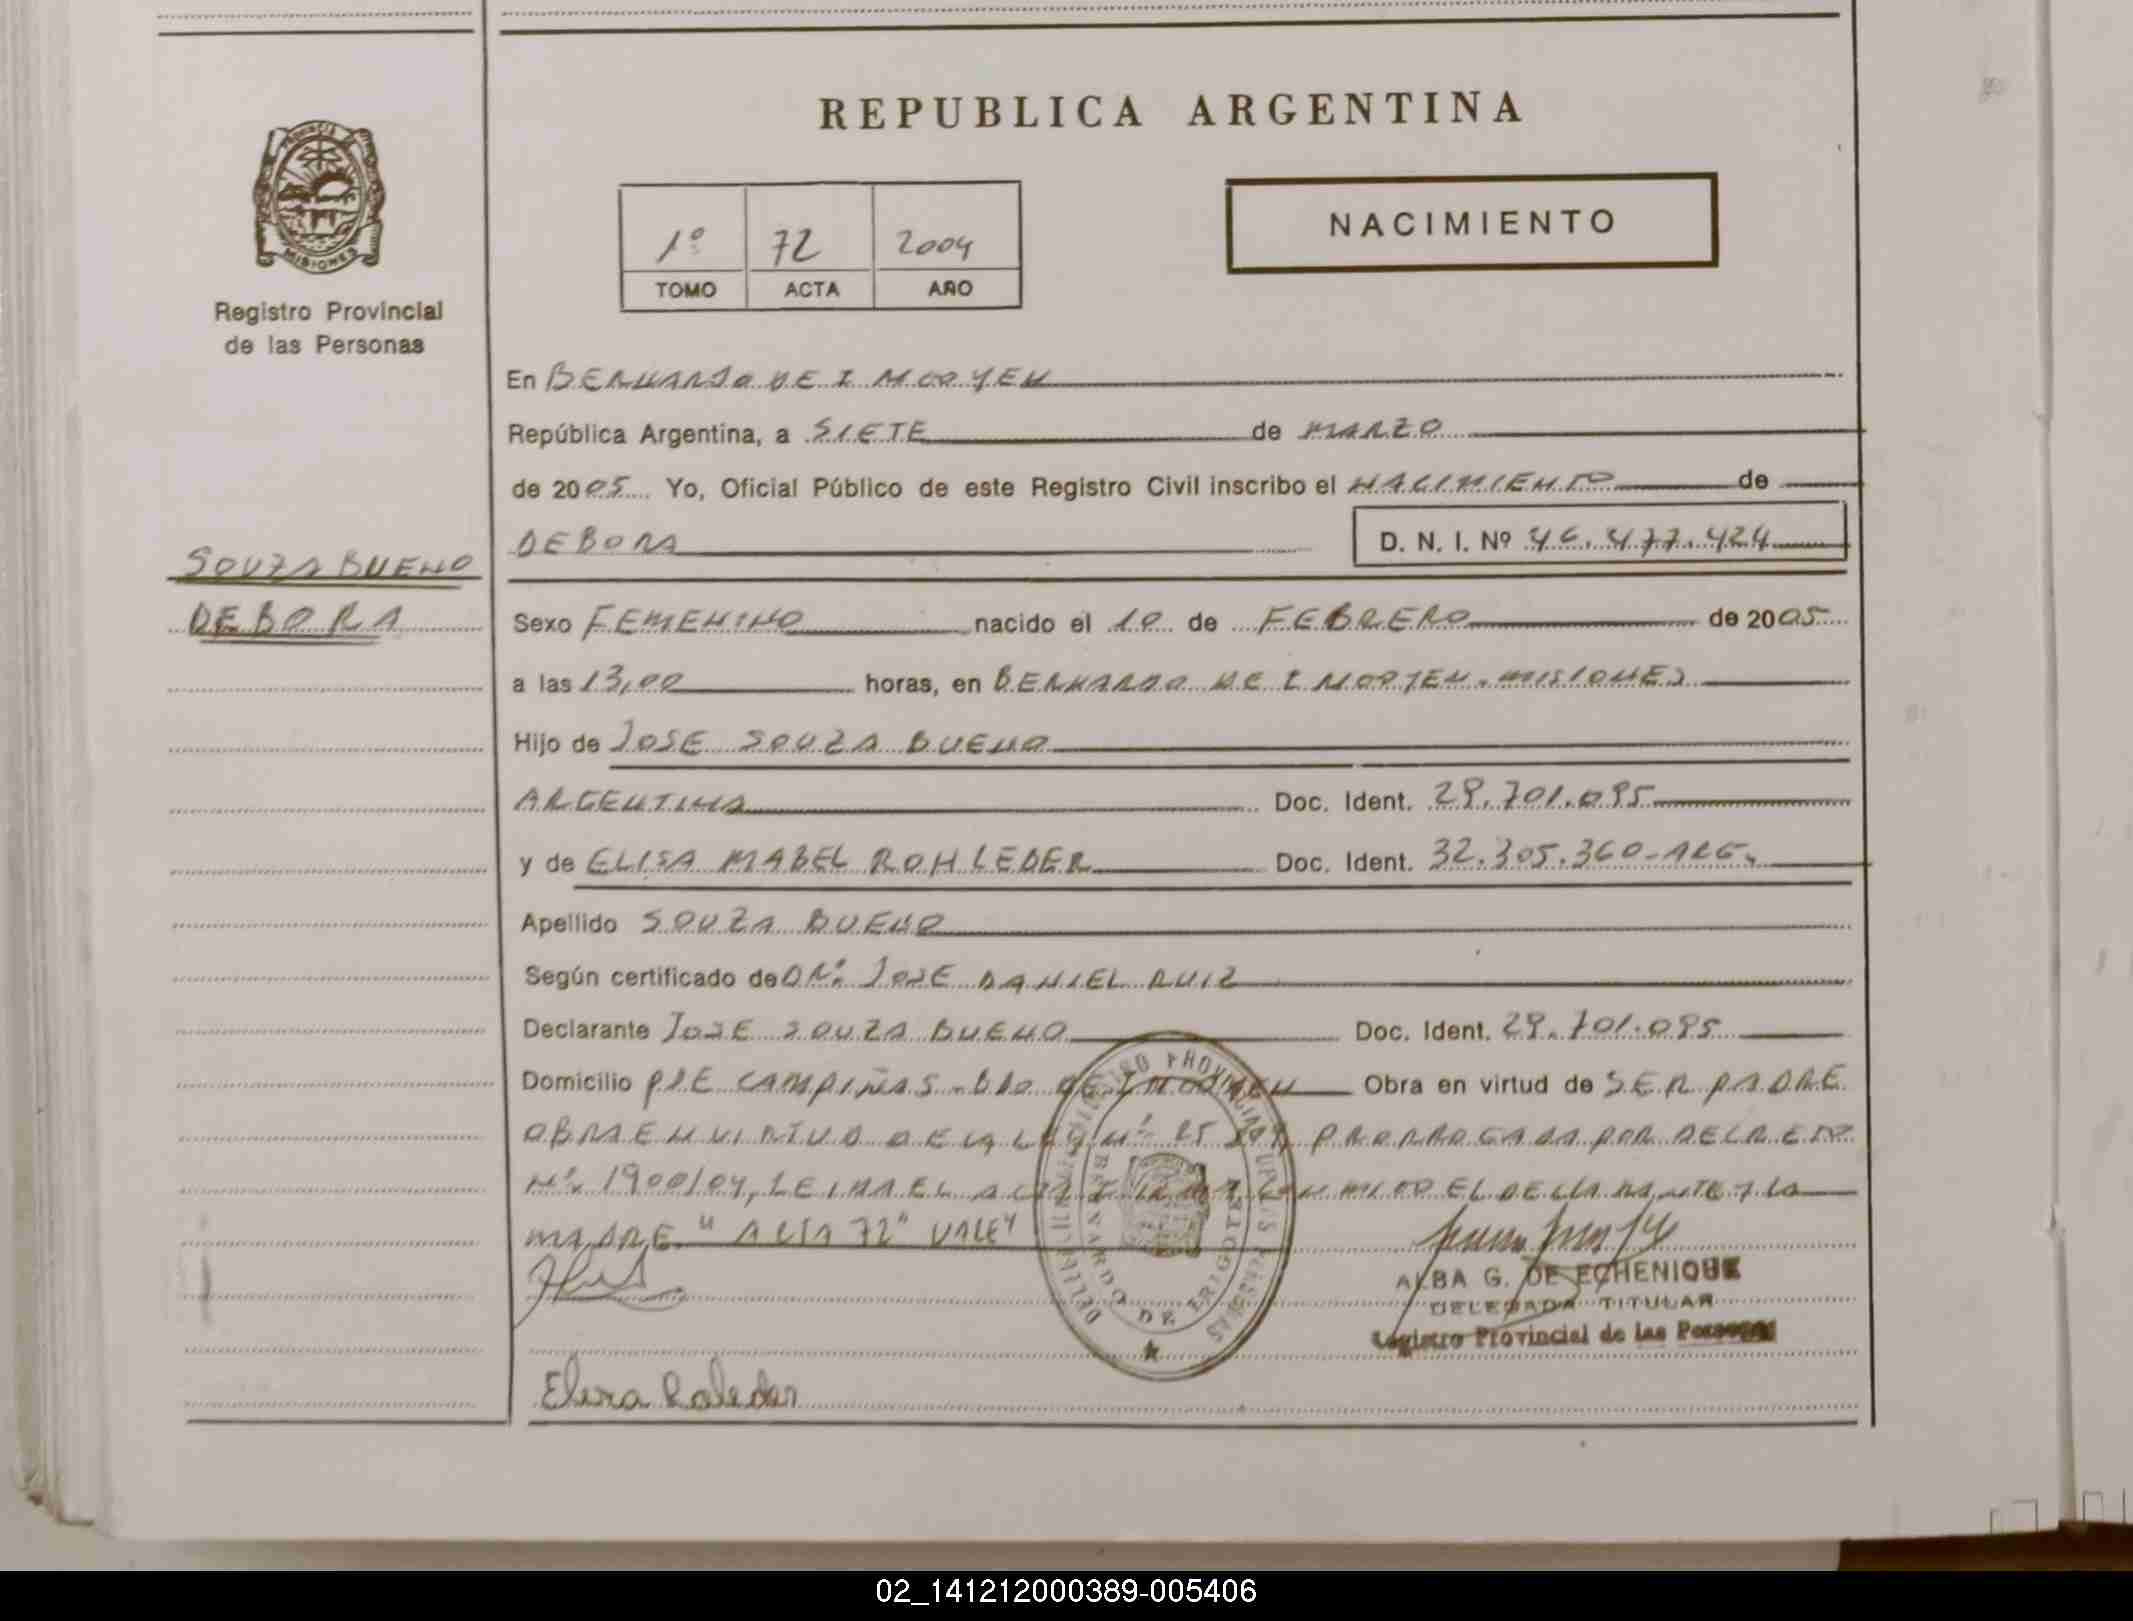 REPUBLICA ARGENTINA
MISIONES
Registro Provincial
de las Personas
1º 72 2004
TOMO ACTA AÑO
NACIMIENTO
En BERNARDO DE IRIGOYEN
República Argentina, a SIETE de MARZO
de 2005 Yo, Oficial Público de este Registro Civil inscribo el NACIMIENTO de
DEBORA D. N. I. Nº 46.477.424
SOUZA BUENO
DEBORA
Sexo FEMENINO nacido el 10 de FEBRERO de 2005
a las 13,00 horas, en BERNARDO DE IRIGOYEN. MISIONES
Hijo de JOSE SOUZA BUENO
ARGENTINA Doc. Ident. 29.701.095
y de ELISA MABEL ROHLEDER Doc. Ident. 32.305.360-ARG.
Apellido SOUZA BUENO
Según certificado de DR. JOSE DANIEL RUIZ
Declarante JOSE SOUZA BUENO Doc. Ident. 29.701.095
Domicilio PJE CAMPIÑAS - BDO DE IRIGOYEN Obra en virtud de SER PADRE
OBRA EN VIRTUD DE LA LEY Nº PRORROGADA POR DECRETO
Nº 1900/04, LEIDA EL ACTA LA CONMIGO EL DECLARANTE Y LA
MADRE "ACTA 72" VALE"
ALBA G. DE ECHENIQUE
DELEGADA TITULAR
Registro Provincial de las Personas
BERNARDO DE IRIGOYEN
02_141212000389-005406